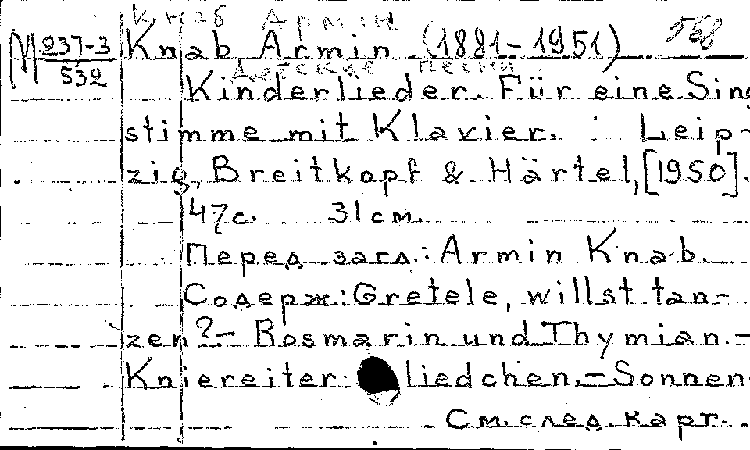 Кнаб Армин
М 237-3/532
Knab Armin (1881-1951) 568
Детские песни
Kinderlieder. Für eine Sing
stimme mit Klavier. Leip-
zig, Breitkopf & Härtel, [1950].
47с. 31см.
Перед загл.: Armin Knab.
Содерж: Gretele, willst tan-
zen?- Rosmarin und Thymian.-
Kniereiter liedchen.- Sonnen
См. след. карт.